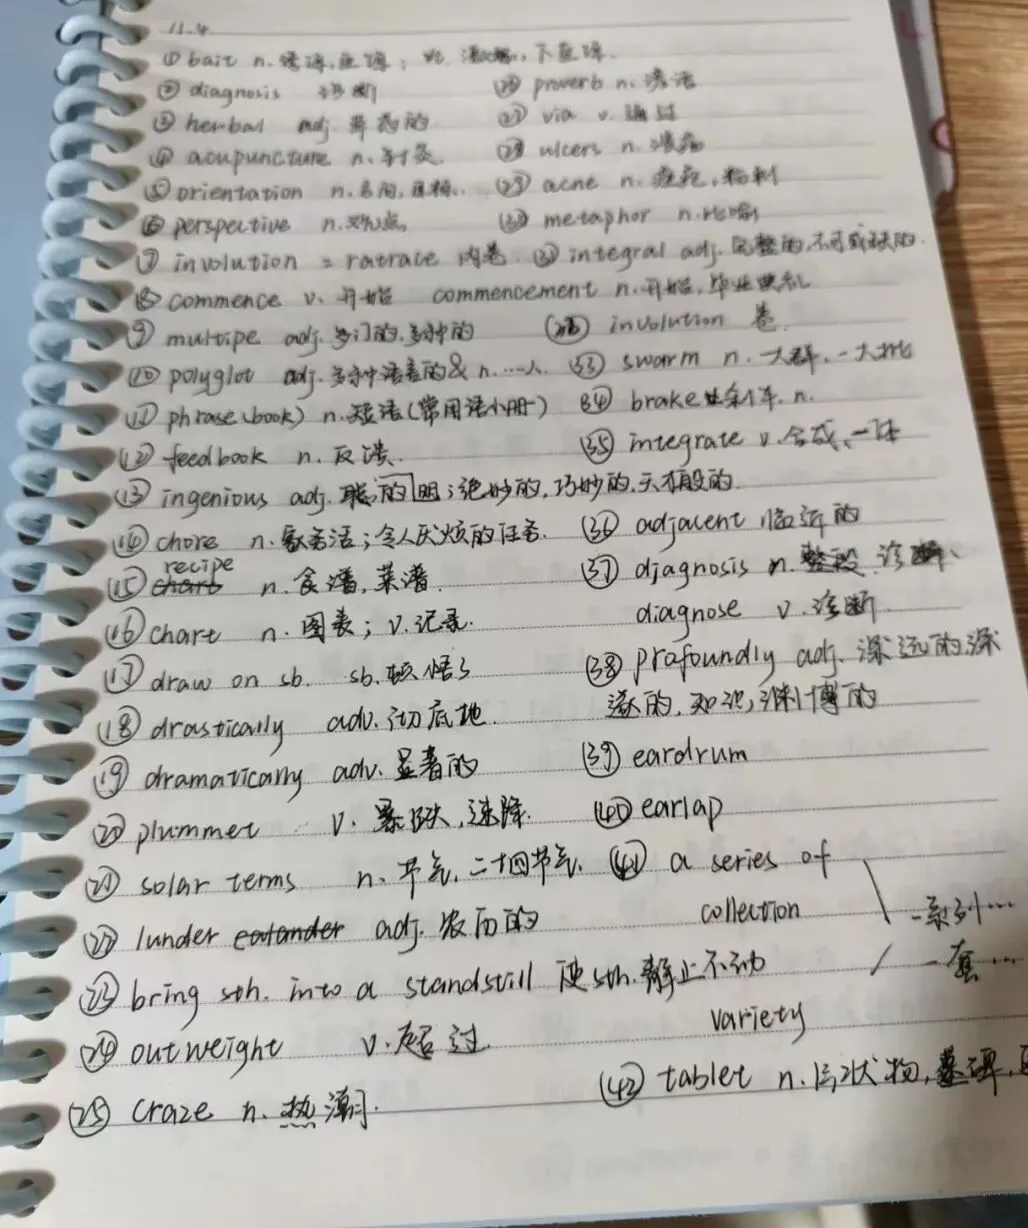 11.4
① bait n. 诱饵,鱼饵; vt. 下鱼饵.
② diagnosis 诊断
③ herbal adj. 草药的
④ acupuncture n. 针灸
⑤ orientation n. 方向,目标.
⑥ perspective n. 观点
⑦ involution = ratrace 内卷
⑧ commence v. 开始 commencement n. 开始,毕业典礼
⑨ multipe adj. 多门的,多种的
⑩ polyglot adj. 多种语言的& n.……人
⑪ phrase(book) n. 短语(常用语小册)
⑫ feedbook n. 反馈.
⑬ ingenious adj. 聪的明;绝妙的,巧妙的,天才般的
⑭ chore n. 家务活;令人厌烦的任务.
⑮ recipe n. 食谱,菜谱.
⑯ chart n. 图表; v. 记录.
⑰ draw on sb. sb. 顿悟了
⑱ drastically adv. 彻底地.
⑲ dramatically adv. 显著的
⑳ plummet v. 暴跌,速降.
㉑ solar terms n. 节气,二十四节气.
㉒ lunder calander adj. 农历的
㉓ bring sth. into a standstill 使sth.静止不动
㉔ outweight v. 超过.
㉕ craze n. 热潮.
㉖ proverb n. 谚语
㉗ via v. 通过
㉘ ulcers n. 溃疡
㉙ acne n. 痤疮,粉刺
㉚ metaphor n. 比喻
㉛ integral adj. 完整的,不可或缺的.
involution 卷
㉝ swarm n. 一大群,一大批
㉞ brake 刹车. n.
㉟ integrate v. 合成,一体
㊱ adjacent 临近的
㊲ diagnosis n. 诊断、
diagnose v. 诊断
㊳ prafoundly adj. 深远的,深
邃的,知识渊博的
㊴ eardrum
㊵ earlap
㊶ a series of
collection 一系列…
一套…
variety
㊷ tablet n. 片状物,墓碑,